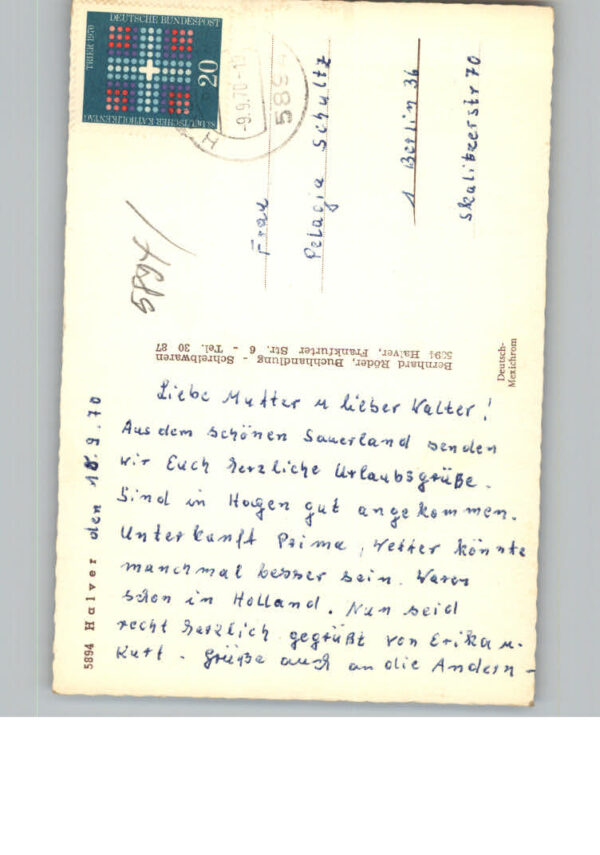 DEUTSCHE BUNDESPOST
TRIER 1970
20
83. DEUTSCHER KATHOLIKENTAG
-9.9.70-
5894
H
5894
Frau
Pelagia Schultz
1 Berlin 36
Skalitzerstr 70
Bernhard Röder, Buchhandlung - Schreibwaren
5894 Halver, Frankfurter Str. 6 - Tel. 30 87
Deutsch-
Mexichrom
5894 Halver den 18.9.70
Liebe Mutter u lieber Walter!
Aus dem schönen Sauerland senden
wir Euch herzliche Urlaubsgrüße.
Sind in Hagen gut angekommen.
Unterkunft Prima, Wetter könnte
manchmal besser sein. Waren
schon in Holland. Nun seid
recht herzlich gegrüßt von Erika u.
Kurt. Grüße auch an die Andern -